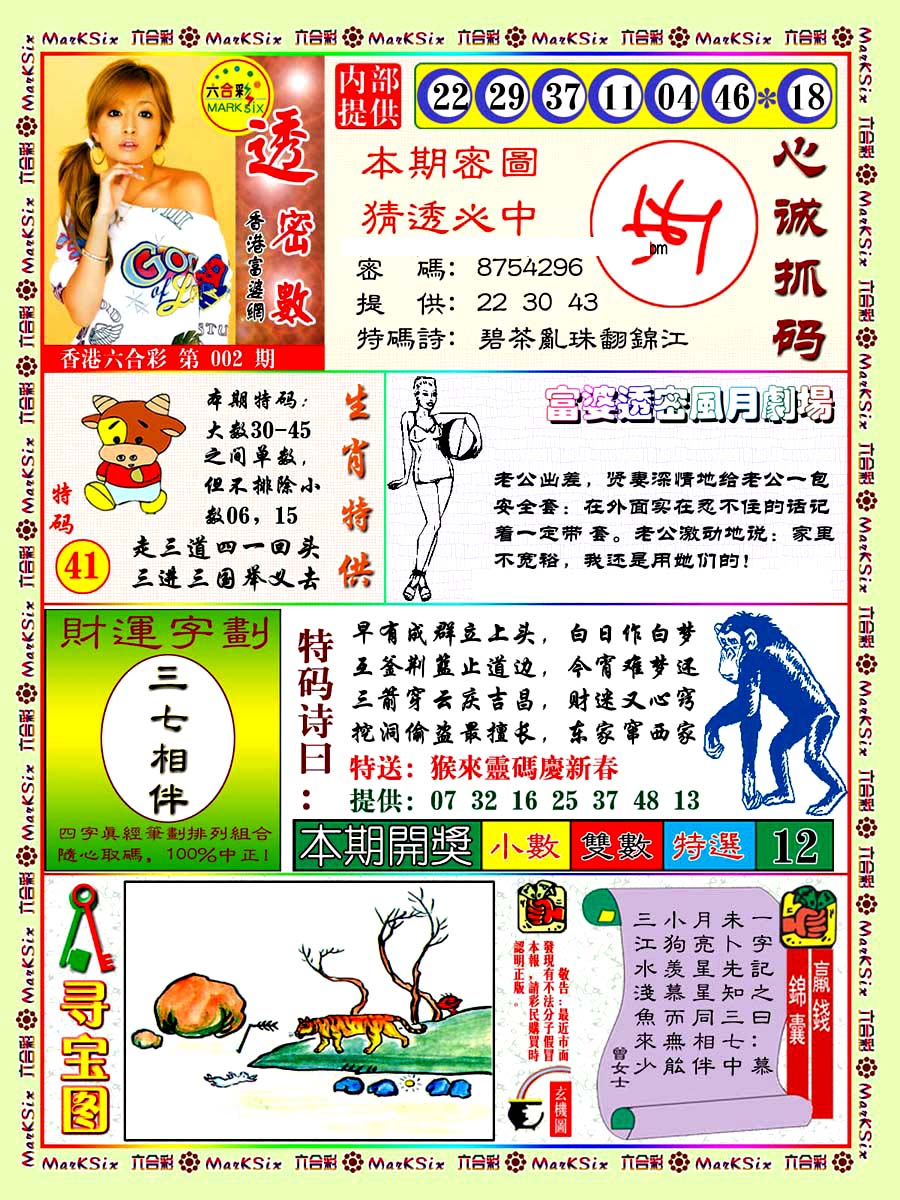 MarKSix 六合彩 MarKSix 六合彩 MarKSix 六合彩 MarKSix 六合彩 MarKSix 六合彩
六合彩
MARK six
透密數
香港富婆網
香港六合彩 第 002 期
内部
提供
22 29 37 11 04 46 * 18
本期密圖
猜透必中
密 碼: 8754296
提 供: 22 30 43
特碼詩: 碧茶亂珠翻錦江
bm
心诚抓码
特码
41
本期特码:
大数30-45
之间单数,
但不排除小
数06, 15
走三道四一回头
三进三国举义去
生肖特供
富婆透密風月劇場
老公出差, 贤妻深情地给老公一包
安全套: 在外面实在忍不住的话记
着一定带 套。老公激动地说: 家里
不宽裕, 我还是用她们的!
財運字劃
三七相伴
四字眞經筆劃排列組合
隨心取碼, 100%中正!
特码诗曰:
早有成群立上头, 白日作白梦
五釜荆蓝止道边, 今宵难梦还
三箭穿云庆吉昌, 财迷又心窍
挖洞偷盗最擅长, 东家窜西家
特送: 猴來靈碼慶新春
提供: 07 32 16 25 37 48 13
本期開獎 小數 雙數 特選 12
寻宝图
敬告:最近市面
發現有不法分子假冒
本報,請彩民購買時
認明正版。
玄機圖
贏錢
錦囊
一字記之曰:慕
未卜先知三七中
月亮星星同相伴
小狗羡慕而無能
三江水淺魚來少
曾女士
MarKSix 六合彩 MarKSix 六合彩 MarKSix 六合彩 MarKSix 六合彩 MarKSix 六合彩